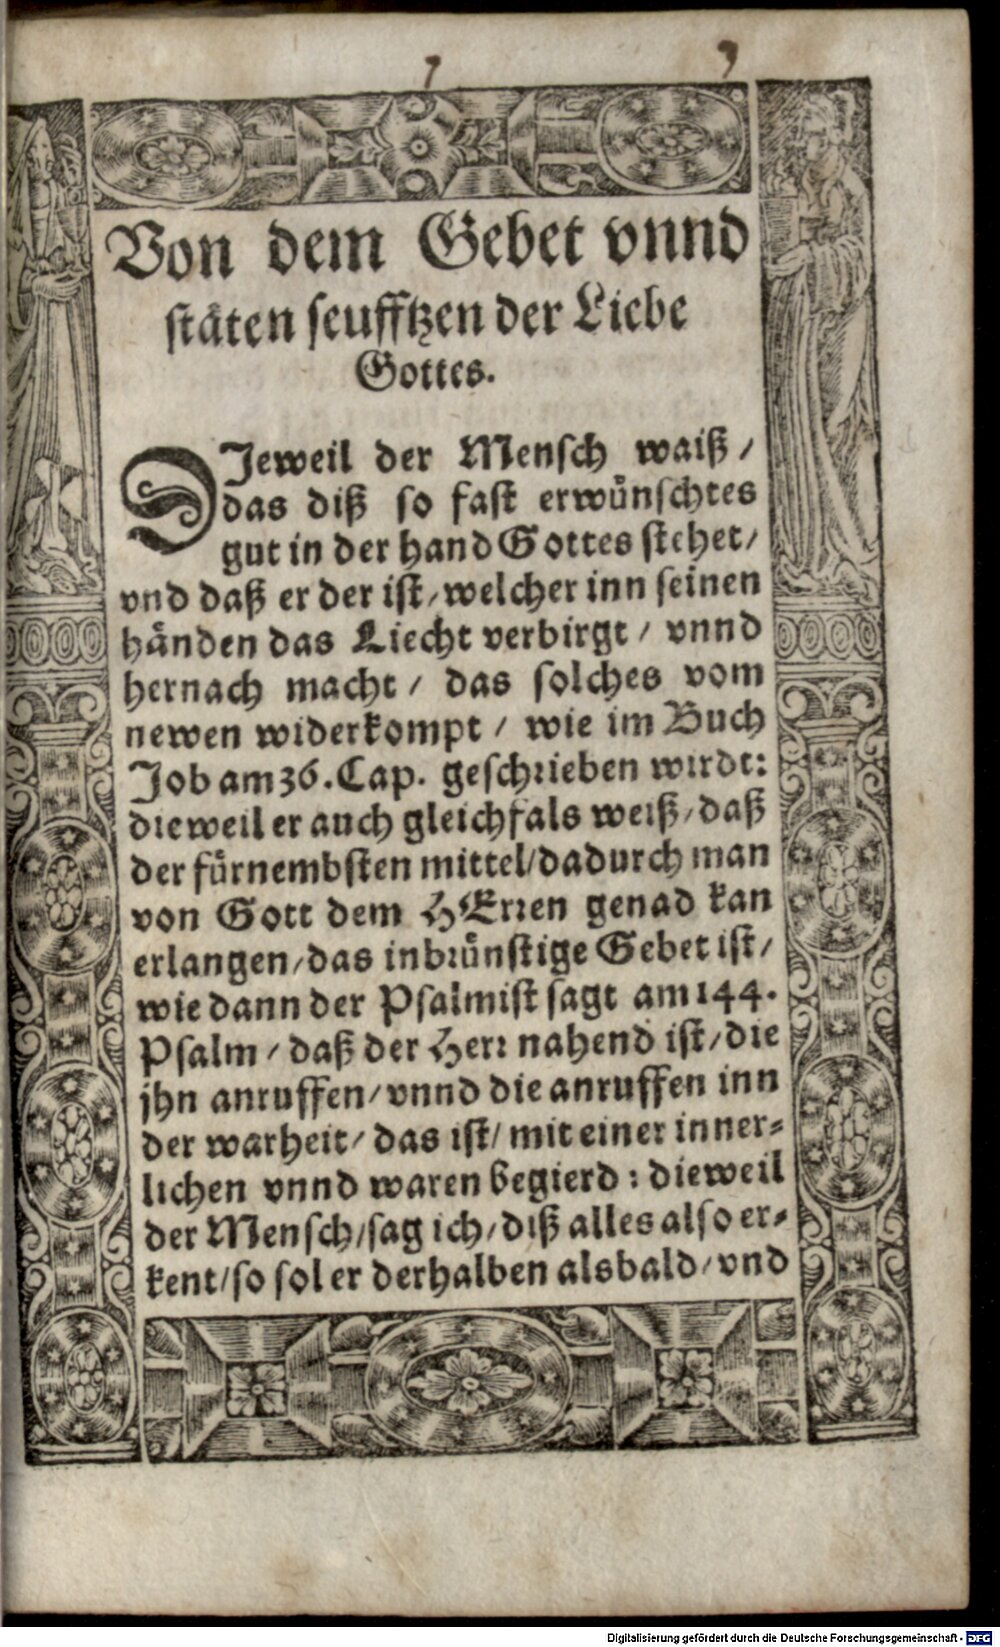 Von dem Gebet vnnd
stäten seufftzen der Liebe
Gottes.
DJeweil der Mensch waiß /
das diß so fast erwünschtes
gut in der hand Gottes stehet /
vnd daß er der ist / welcher inn seinen
händen das Liecht verbirgt / vnnd
hernach macht / das solches vom
newen widerkompt / wie im Buch
Job am 36. Cap. geschrieben wirdt:
dieweil er auch gleichfals weiß / daß
der fürnembsten mittel / dadurch man
von Gott dem HErren genad kan
erlangen / das inbrünstige Gebet ist /
wie dann der Psalmist sagt am 144.
Psalm / daß der Herr nahend ist / die
jhn anruffen / vnnd die anruffen inn
der warheit / das ist / mit einer inner-
lichen vnnd waren begierd : dieweil
der Mensch / sag ich / diß alles also er-
kent / so sol er derhalben alsbald / vnd
Digitalisierung gefördert durch die Deutsche Forschungsgemeinschaft - DFG